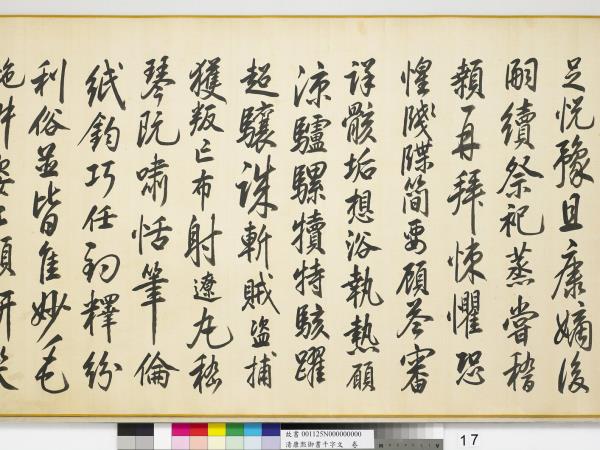 足悅豫且康嫡後
嗣續祭祀蒸嘗稽
顙再拜悚懼恐
惶牋牒簡要顧答審
詳骸垢想浴執熱願
涼驢騾犢特駭躍
超驤誅斬賊盜捕
獲叛亡布射遼丸嵇
琴阮嘯恬筆倫
紙鈞巧任釣釋紛
利俗並皆佳妙毛
施淑姿工顰妍笑
故書 001125N000000000
清康熙御書千字文 卷
17